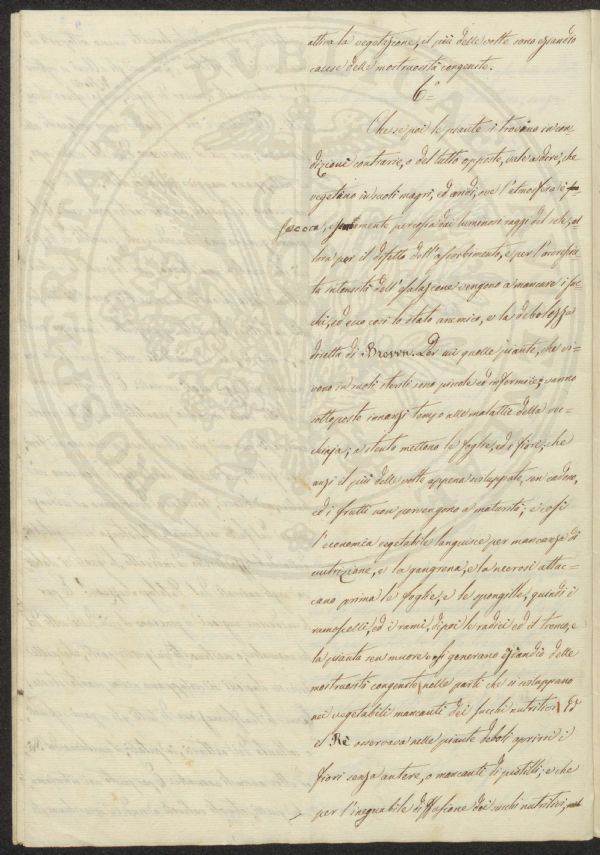 attiva la vegetazione, il più delle volte sono eziandio
cause delle mostruosità congenite.
6°
Che se poi le piante si trovano in con-
dizioni contrarie, o del tutto opposte, vale a dire, che
vegetano in suoli magri, ed aridi, ove l'atmosfera è
secca, e fortemente percossa dai luminosi raggi del sole; al-
lora per il difetto dell'assorbimento, e per l'accresciu-
ta intensità dell'esalazione vengono a mancare i suc-
chi, ed ecco così lo stato anemico, e la debolezza
diretta di Brown. Per cui quelle piante, che vi-
vono in suoli sterili sono piccole ed informi; e vanno
sottoposte innanzi tempo alle malattie della vec-
chiaja; a stento mettono le foglie, ed i fiori, che
anzi il più delle volte appena sviluppate, sen cadono,
ed i frutti non pervengono a maturità; e così
l'economia vegetabile languisce per mancanza di
nutrizione, e la gangrena, e la necrosi attac-
cano prima le foglie, e le spongille, quindi i
ramoscelli, ed i rami, dipoi le radici ed il tronco, e
la pianta sen muore, e si generano eziandio delle
mostruosità congenite nelle parti che si sviluppano
nei vegetabili mancanti dei succhi nutritivi. Ed
il Rè osservava nelle piante deboli aprirsi i
fiori senza antere, o mancanti di pistilli; e che
per l'ineguabile diffusione dei succhi nutritivi,
PROSPERITATI PVBLICAE